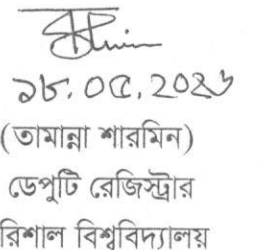 ১৮.০৫.২০২৬
(তামান্না শারমিন)
ডেপুটি রেজিস্ট্রার
রিশাল বিশ্ববিদ্যালয়